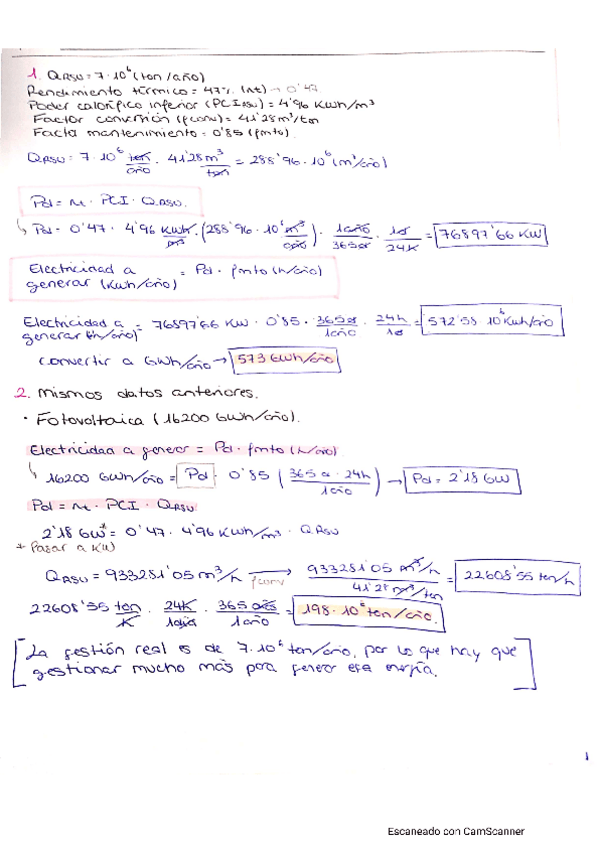 1. QRSU = 7·10⁶ (ton/año)
Rendimiento térmico = 47% (ηt) → 0'47
Poder calorífico inferior (PCI RSU) = 4'96 Kwh/m³
Factor conversión (fconv) = 41'28 m³/ton
Facta mantenimiento = 0'85 (fmto)
QRSU = 7·10⁶ ton/año · 41'28 m³/ton = 288'96·10⁶ (m³/año)
Pd = η · PCI · QRSU.
↳ Pd = 0'47 · 4'96 Kwh/m³ · (288'96·10⁶ m³/año) · 1año/365d · 1d/24h = 76897'66 KW
Electricidad a generar (Kwh/año) = Pd · fmto (h/año)
Electricidad a generar (Kwh/año) = 76897'66 KW · 0'85 · 365d/1año · 24h/1d = 572'58 10⁶ Kwh/año
convertir a Gwh/año → 573 GWh/año
2. Mismos datos anteriores.
· Fotovoltaica (16200 Gwh/año).
Electricidad a generar = Pd · fmto (h/año)
↳ 16200 GWh/año = Pd · 0'85 (365d · 24h / 1año) → Pd = 2'18 GW
Pd = η · PCI · QRSU
2'18 GW* = 0'47 · 4'96 Kwh/m³ · QRSU
* Pasar a KW
QRSU = 933281'05 m³/h → fconv 933281'05 m³/h / 41'28 m³/ton = 22608'55 ton/h
22608'55 ton/h · 24h/1día · 365 días/1año = 198·10⁶ ton/año.
[La gestión real es de 7·10⁶ ton/año, por lo que hay que
gestionar mucho más para generar esa energía.]
1
Escaneado con CamScanner